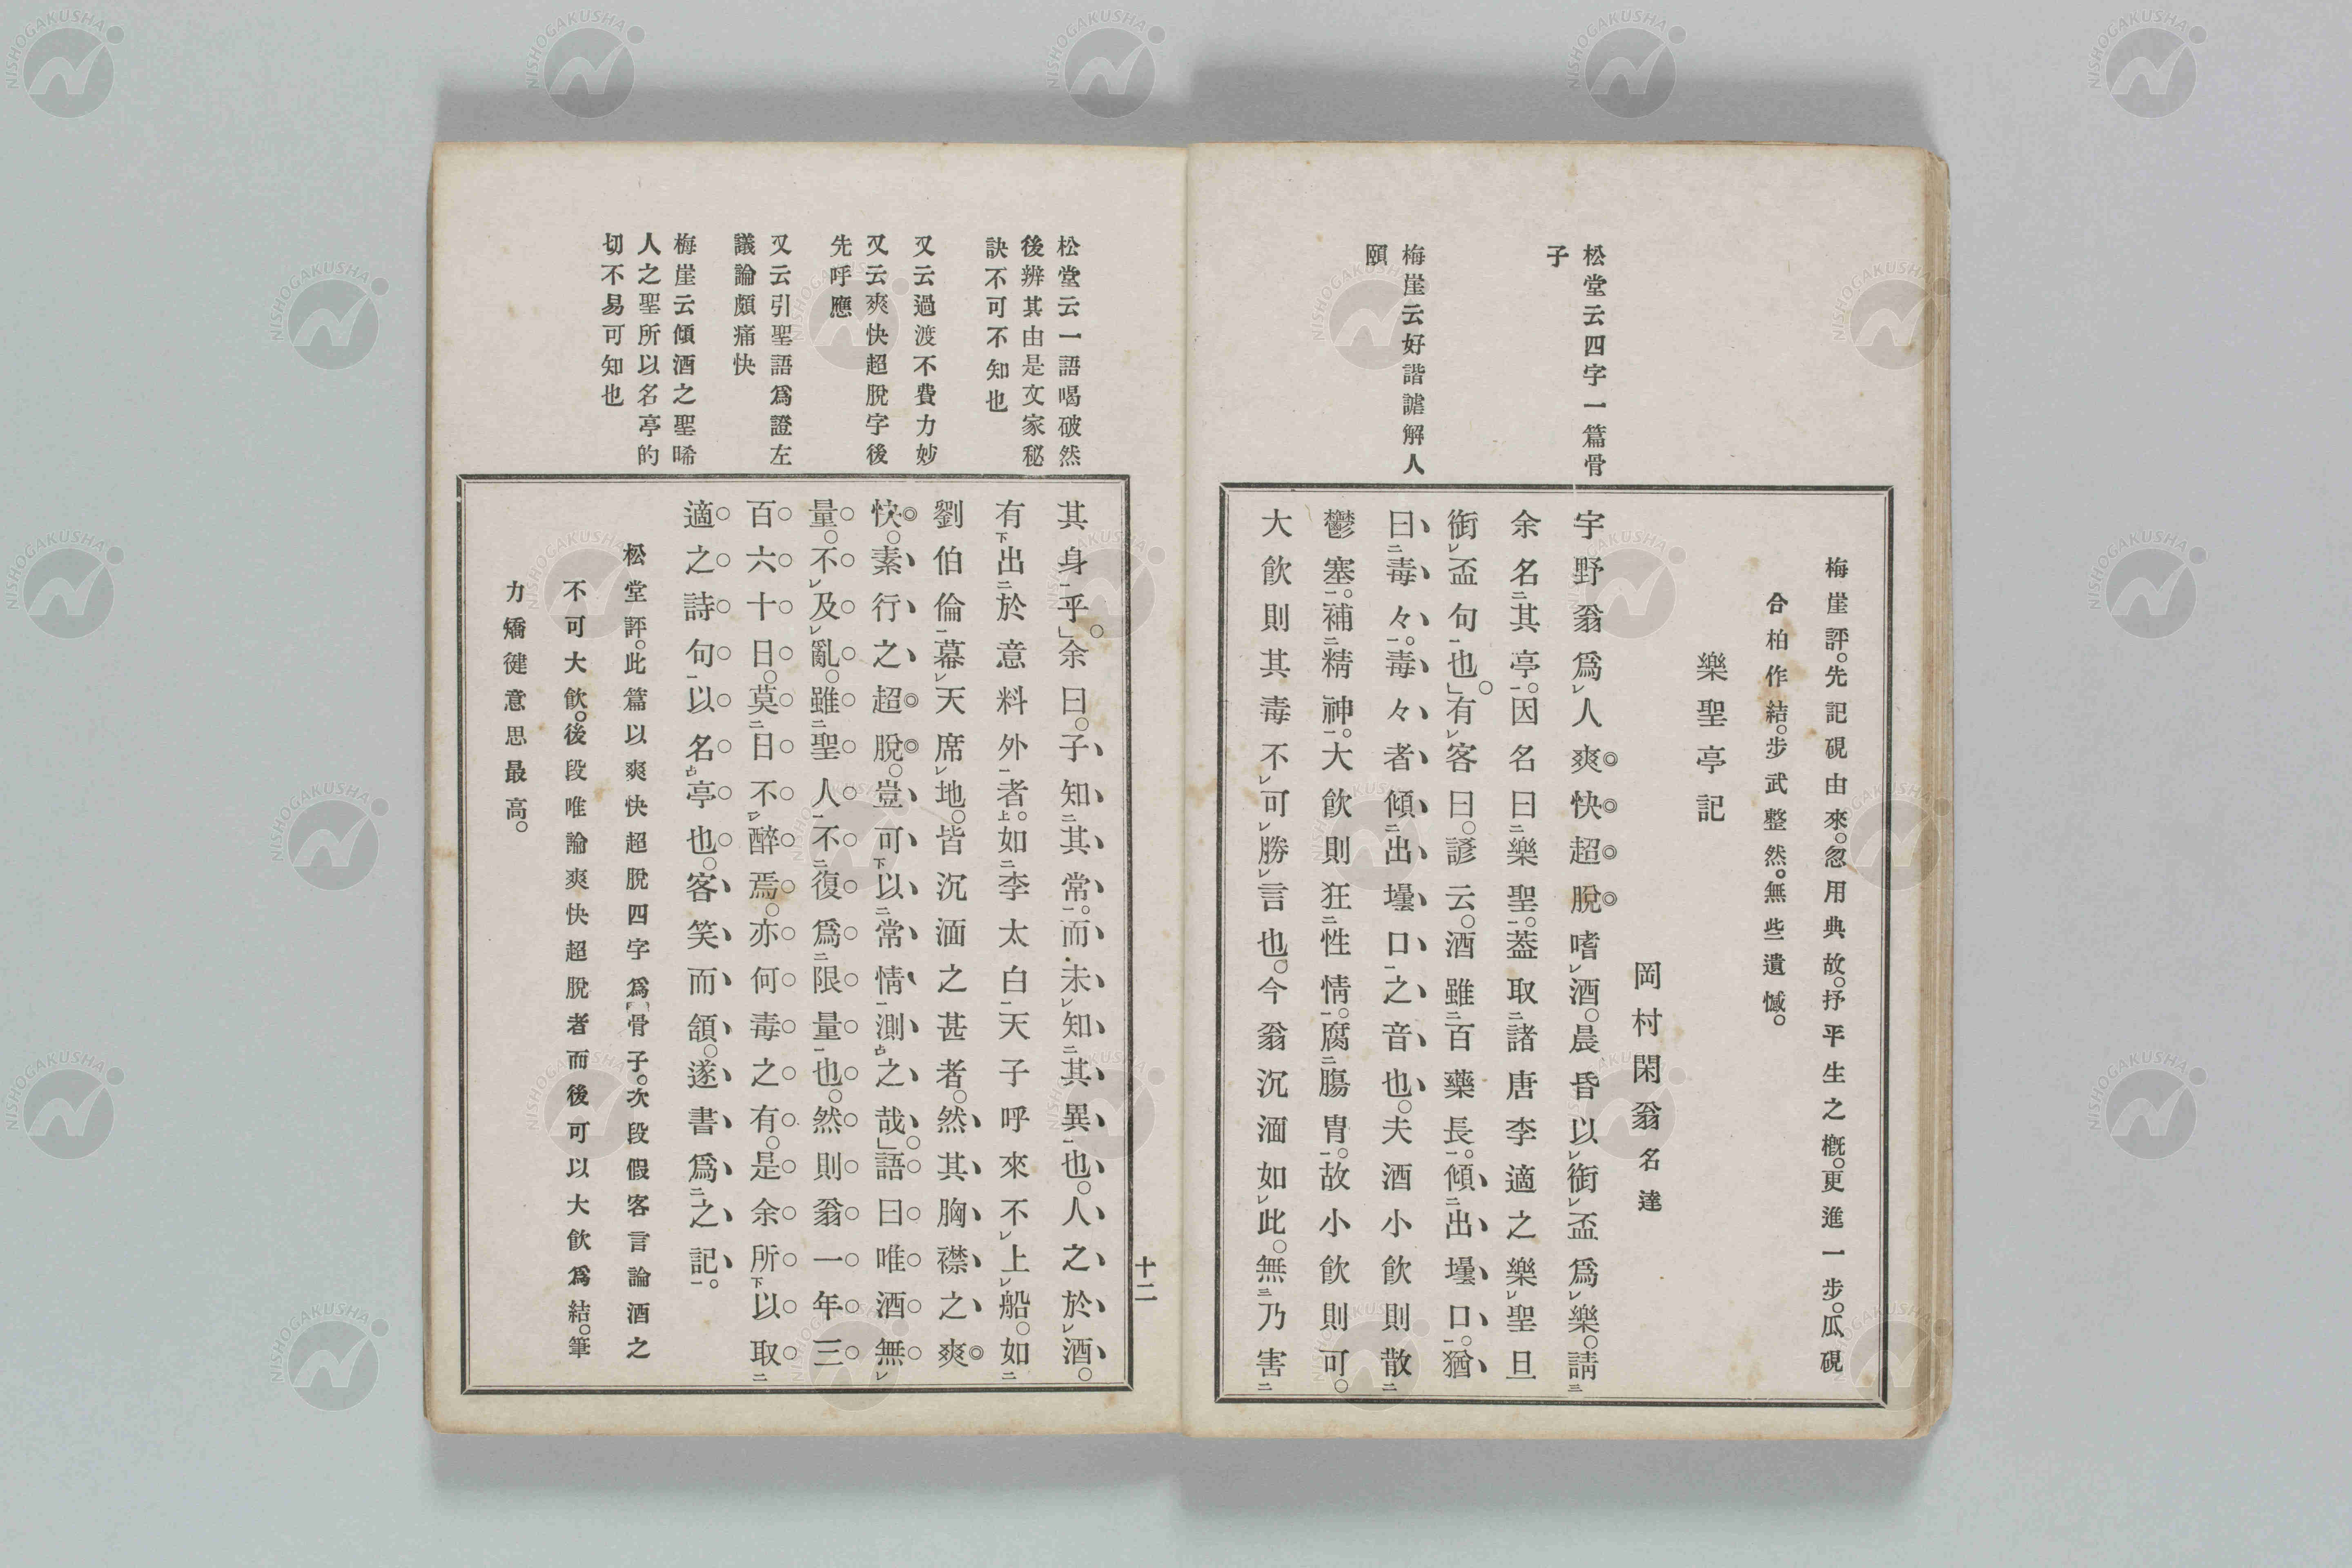 松堂云四字一篇骨
子
梅崖云好諧謔解人
頤
梅崖評。先記硯由來。忽用典故。抒平生之概。更進一步。瓜硯
合柏作結。步武整然。無些遺憾。
樂聖亭記
岡村閑翁名達
宇野翁爲レ人爽快超脫嗜レ酒。晨昏以レ銜レ盃爲レ樂。請三
余名二其亭一。因名曰二樂聖一。蓋取二諸唐李適之樂レ聖且
銜レ盃句一也」。有レ客曰。諺云。酒雖二百藥長一。傾二出壜口一。猶
曰二毒々一。毒々者傾二出壜口一之音也。夫酒小飮則散二
鬱塞一。補二精神一。大飮則狂二性情一。腐二腸胃一。故小飮則可。
大飮則其毒不レ可レ勝レ言也。今翁沉湎如レ此。無三乃害二
松堂云一語喝破然
後辨其由是文家秘
訣不可不知也
又云過渡不費力妙
又云爽快超脫字後
先呼應
又云引聖語爲證左
議論頗痛快
梅崖云傾酒之聖唏
人之聖所以名亭的
切不易可知也
其身一乎」。余曰。子知二其常一。而未レ知二其異一也。人之於レ酒。
有下出二於意料外一者上。如二李太白一天子呼來不レ上レ船。如二
劉伯倫一幕レ天席レ地。皆沉湎之甚者。然其胸襟之爽
快。素行之超脫。豈可下以二常情一測上之哉」。語曰唯酒無レ
量。不レ及レ亂。雖二聖人一不三復爲二限量一也。然則翁一年三
百六十日。莫二日不一レ醉焉。亦何毒之有。是余所下以取二
適之詩句一以名上亭也。客笑而頷。遂書爲二之記一。
松堂評。此篇以爽快超脫四字爲骨子。次段假客言論酒之
不可大飮。後段唯論爽快超脫者而後可以大飮爲結。筆
力矯健意思最高。
十二
NISHOGAKUSHA